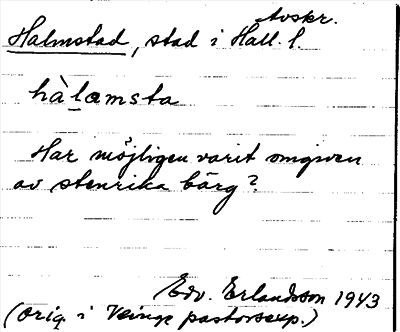 Avskr.
Halmstad, stad i Hall. l.
hàlamsta
Har möjligen varit omgiven
av stenrika bärg?
Edv. Erlandsson 1943
(orig i Veinge pastorsexp.)